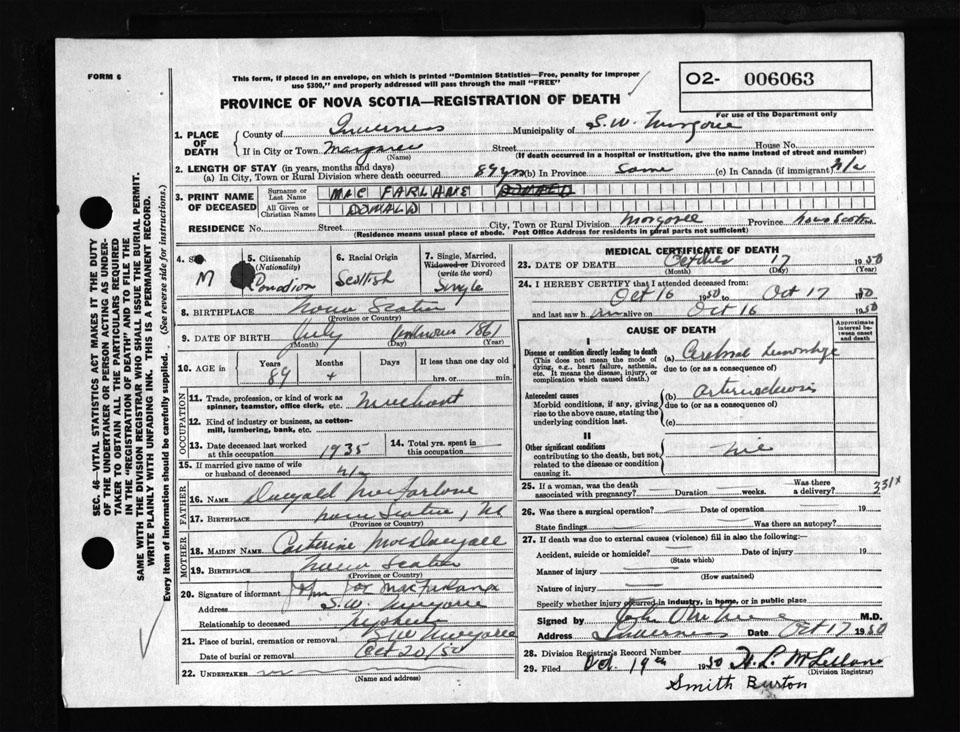 FORM 6
This form, if placed in an envelope, on which is printed "Dominion Statistics—Free, penalty for improper
use $300," and properly addressed will pass through the mail "FREE"
O2- 006063
For use of the Department only
PROVINCE OF NOVA SCOTIA—REGISTRATION OF DEATH
1. PLACE OF DEATH
County of Inverness Municipality of S.W. Margaree
If in City or Town Margaree Street House No.
(Name) (If death occurred in a hospital or institution, give the name instead of street and number)
2. LENGTH OF STAY (in years, months and days)
(a) In City, Town or Rural Division where death occurred 89 yrs (b) In Province Same (c) In Canada (if immigrant) N/a
3. PRINT NAME OF DECEASED
Surname or Last Name MAC FARLANE DONALD
All Given or Christian Names DONALD
RESIDENCE No. Street City, Town or Rural Division Margaree Province Nova Scotia
(Residence means usual place of abode. Post Office Address for residents in rural parts not sufficient)
4. Sex M
5. Citizenship (Nationality) Canadian
6. Racial Origin Scottish
7. Single, Married, Widowed or Divorced (write the word) Single
8. BIRTHPLACE Nova Scotia
(Province or Country)
9. DATE OF BIRTH July unknown 1861
(Month) (Day) (Year)
10. AGE in Years 89 Months + Days If less than one day old hrs. or min.
OCCUPATION
11. Trade, profession, or kind of work as spinner, teamster, office clerk, etc. Merchant
12. Kind of industry or business, as cotton-mill, lumbering, bank, etc.
13. Date deceased last worked at this occupation 1935
14. Total yrs. spent in this occupation
15. If married give name of wife or husband of deceased n/a
FATHER
16. NAME Dougald MacFarlane
17. BIRTHPLACE Nova Scotia, NS
(Province or Country)
MOTHER
18. MAIDEN NAME Catherine MacDougall
19. BIRTHPLACE Nova Scotia
(Province or Country)
20. Signature of informant MacFarlane
Address S.W. Margaree
Relationship to deceased Nephew
21. Place of burial, cremation or removal S.W. Margaree
Date of burial or removal Oct 20/50
22. UNDERTAKER
(Name and address)
MEDICAL CERTIFICATE OF DEATH
23. DATE OF DEATH October 17 1950
(Month) (Day) (Year)
24. I HEREBY CERTIFY that I attended deceased from:
Oct 16 1950 to Oct 17 1950
and last saw h im alive on Oct 16 1950
CAUSE OF DEATH
Approximate interval between onset and death
I
Disease or condition directly leading to death
(This does not mean the mode of dying, e.g., heart failure, asthenia, etc. It means the disease, injury, or complication which caused death.)
(a) Cerebral hemorrhage
due to (or as a consequence of)
Antecedent causes
Morbid conditions, if any, giving rise to the above cause, stating the underlying condition last.
(b) arteriosclerosis
due to (or as a consequence of)
(c)
II
Other significant conditions contributing to the death, but not related to the disease or condition causing it.
25. If a woman, was the death associated with pregnancy? Duration weeks. Was there a delivery?
331x
26. Was there a surgical operation? Date of operation 19
State findings Was there an autopsy?
27. If death was due to external causes (violence) fill in also the following:
Accident, suicide or homicide? Date of injury 19
(State which)
Manner of injury
(How sustained)
Nature of injury
Specify whether injury occurred in industry, in home, or in public place
Signed by M.D.
Address Inverness Date Oct 17 1950
28. Division Registrar's Record Number
29. Filed Oct. 19th 1950 H. L. McLellan
(Division Registrar)
Smith Burton
SEC. 46—VITAL STATISTICS ACT MAKES IT THE DUTY
OF THE UNDERTAKER OR PERSON ACTING AS UNDER-
TAKER TO OBTAIN ALL THE PARTICULARS REQUIRED
IN THE "REGISTRATION OF DEATH" AND TO FILE THE
SAME WITH THE DIVISION REGISTRAR WHO SHALL ISSUE THE BURIAL PERMIT.
WRITE PLAINLY WITH UNFADING INK. THIS IS A PERMANENT RECORD.
Every item of information should be carefully supplied. (See reverse side for instructions.)